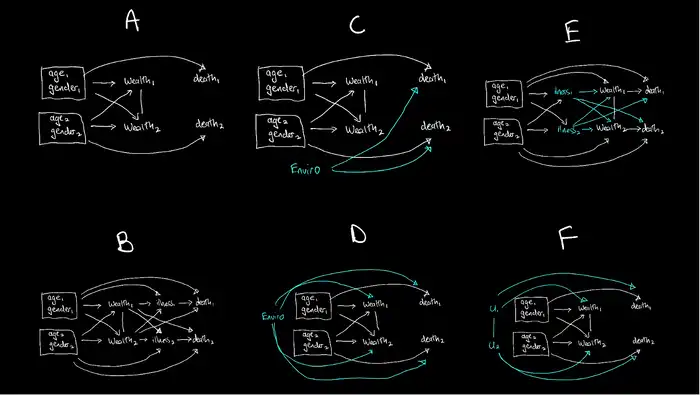 A
age₁
gender₁
wealth₁
death₁
age₂
gender₂
wealth₂
death₂
C
age₁
gender₁
wealth₁
death₁
age₂
gender₂
wealth₂
death₂
Enviro
E
age₁
gender₁
illness₁
wealth₁
death₁
age₂
gender₂
illness₂
wealth₂
death₂
B
age₁
gender₁
wealth₁
illness₁
death₁
age₂
gender₂
wealth₂
illness₂
death₂
D
age₁
gender₁
Enviro
wealth₁
death₁
age₂
gender₂
wealth₂
death₂
F
U₁
age₁
gender₁
wealth₁
death₁
U₂
age₂
gender₂
wealth₂
death₂